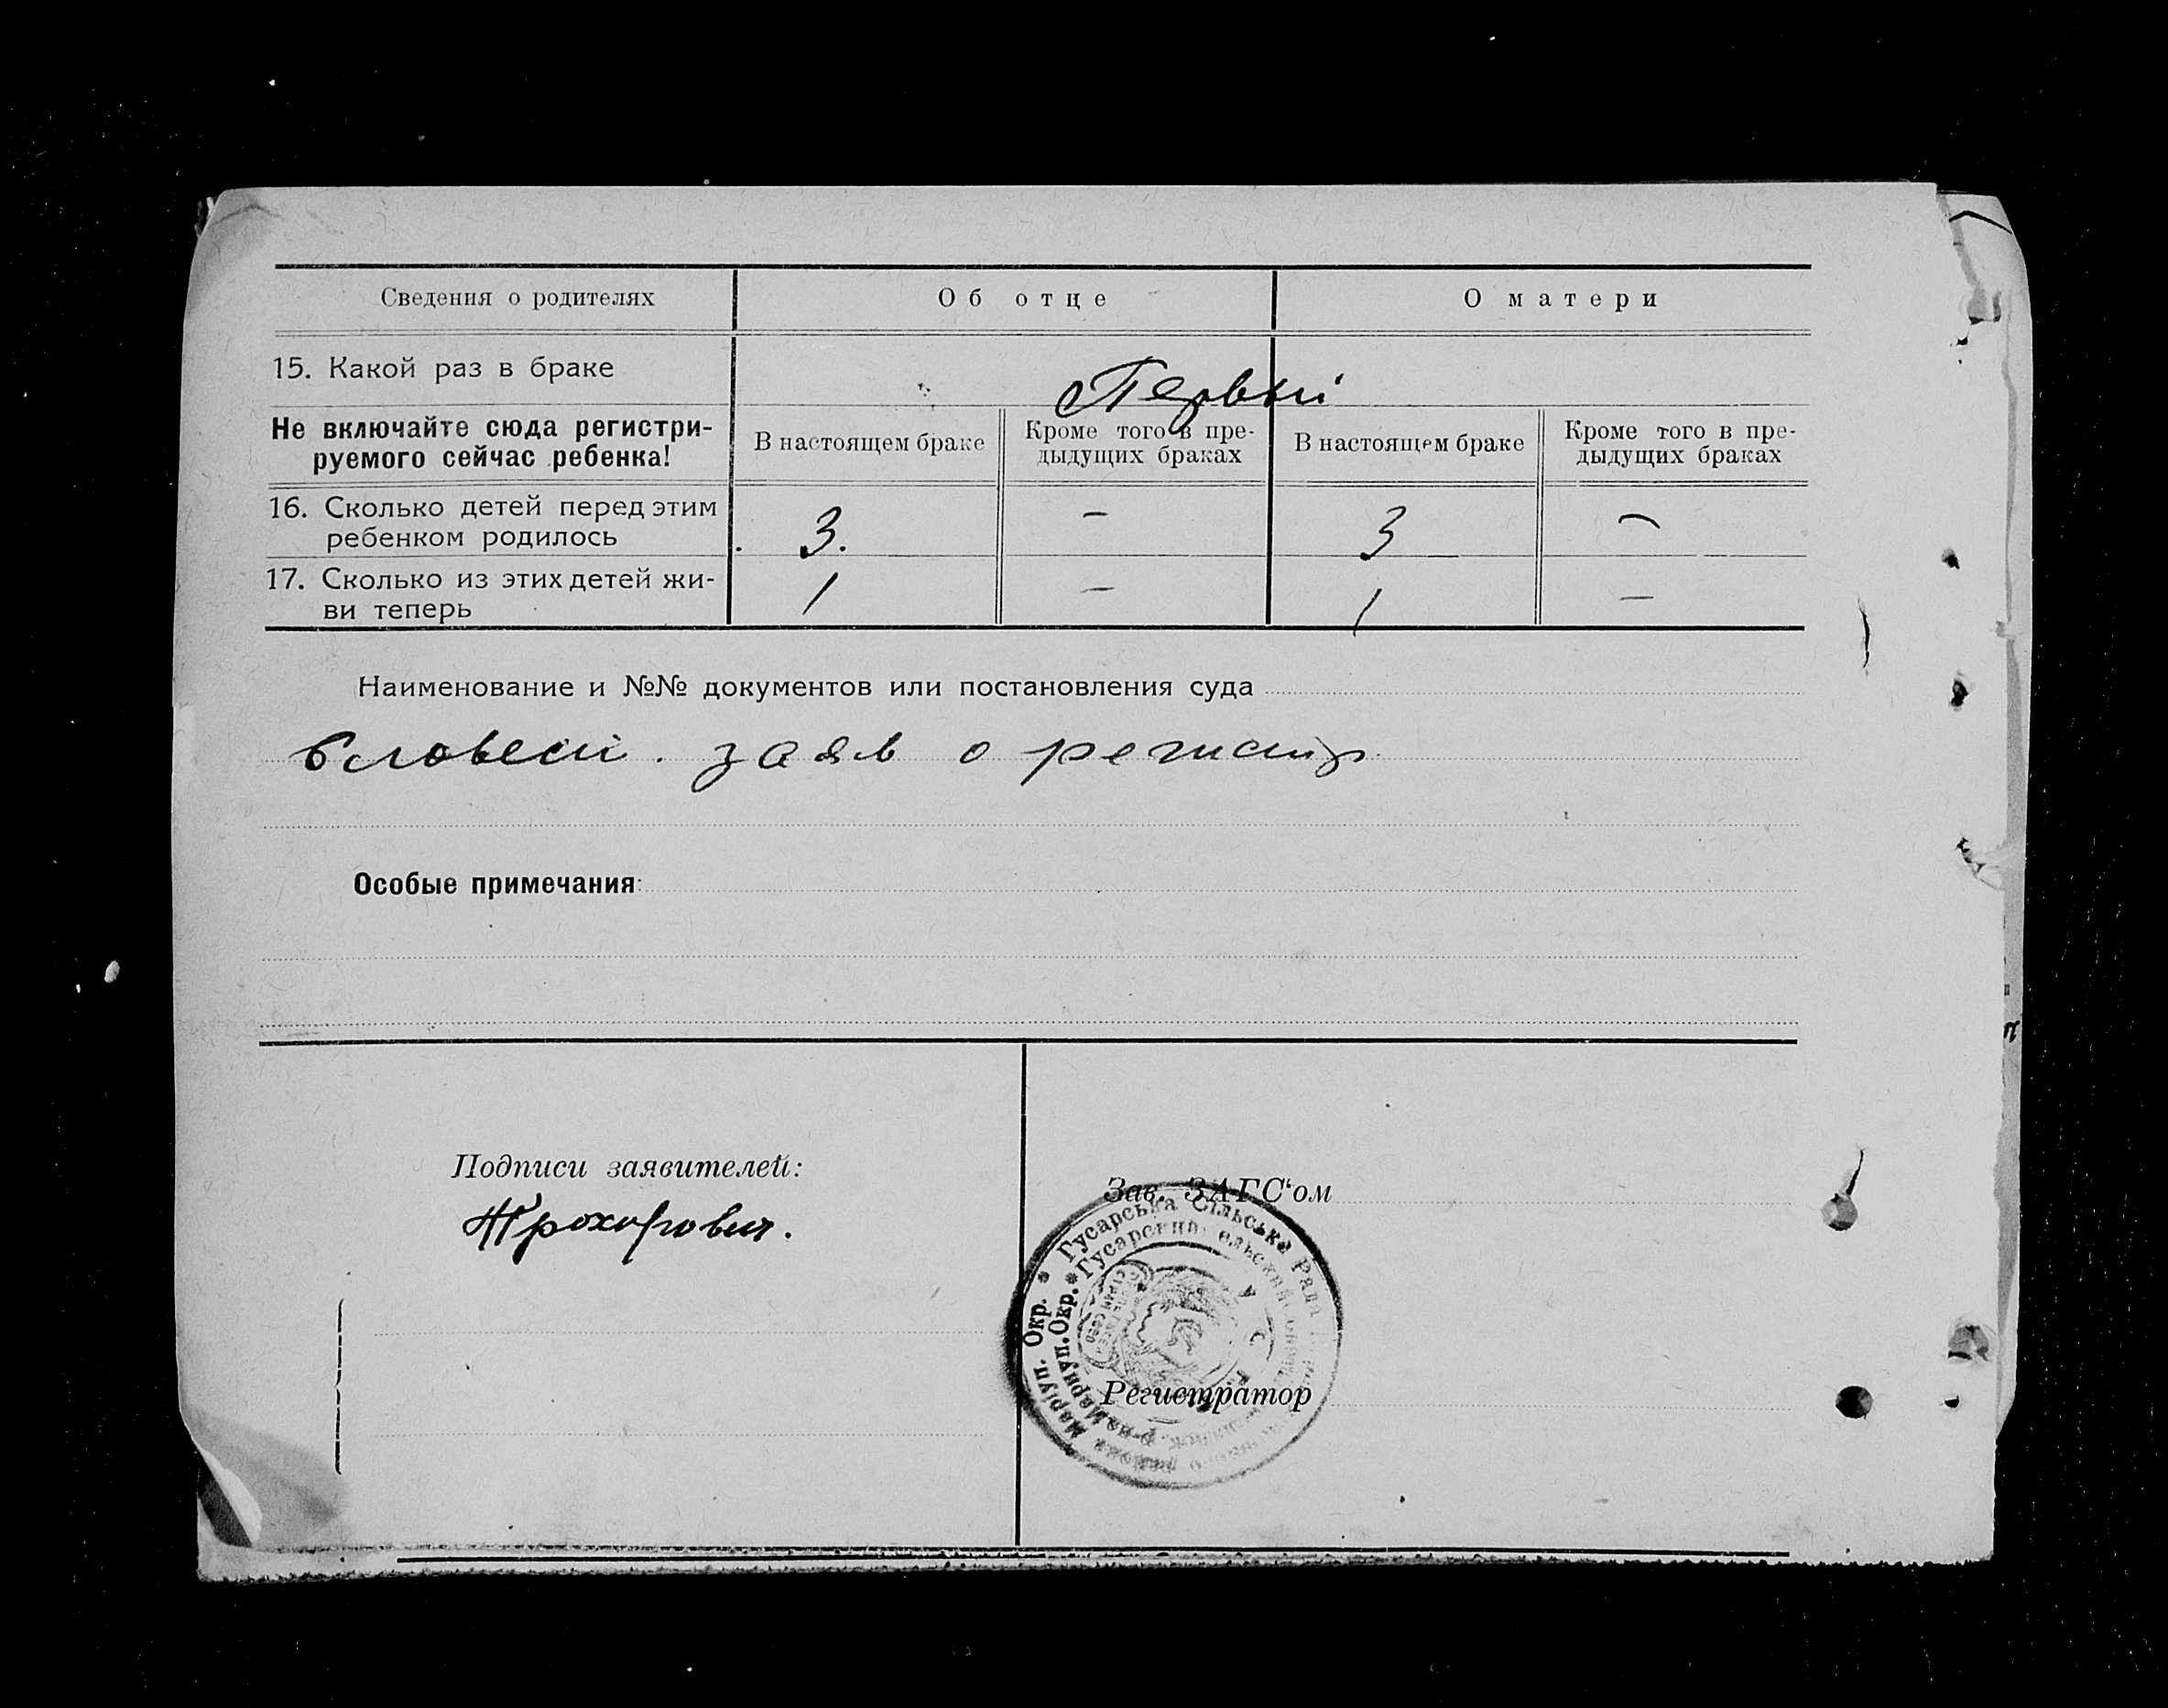 Сведения о родителях
Об отце
О матери
15. Какой раз в браке
Первый
Не включайте сюда регистри-
руемого сейчас ребенка!
В настоящем браке
Кроме того в пре-
дыдущих браках
В настоящем браке
Кроме того в пре-
дыдущих браках
16. Сколько детей перед этим
ребенком родилось
3.
-
3
-
17. Сколько из этих детей жи-
ви теперь
1
-
1
-
Наименование и №№ документов или постановления суда
заяв о регистр
Особые примечания:
Подписи заявителей:
Зав. ЗАГС'ом
Гусарська Сільська Рада
Маріуп. Окр. *
Мариуп. Окр. *
Регистратор